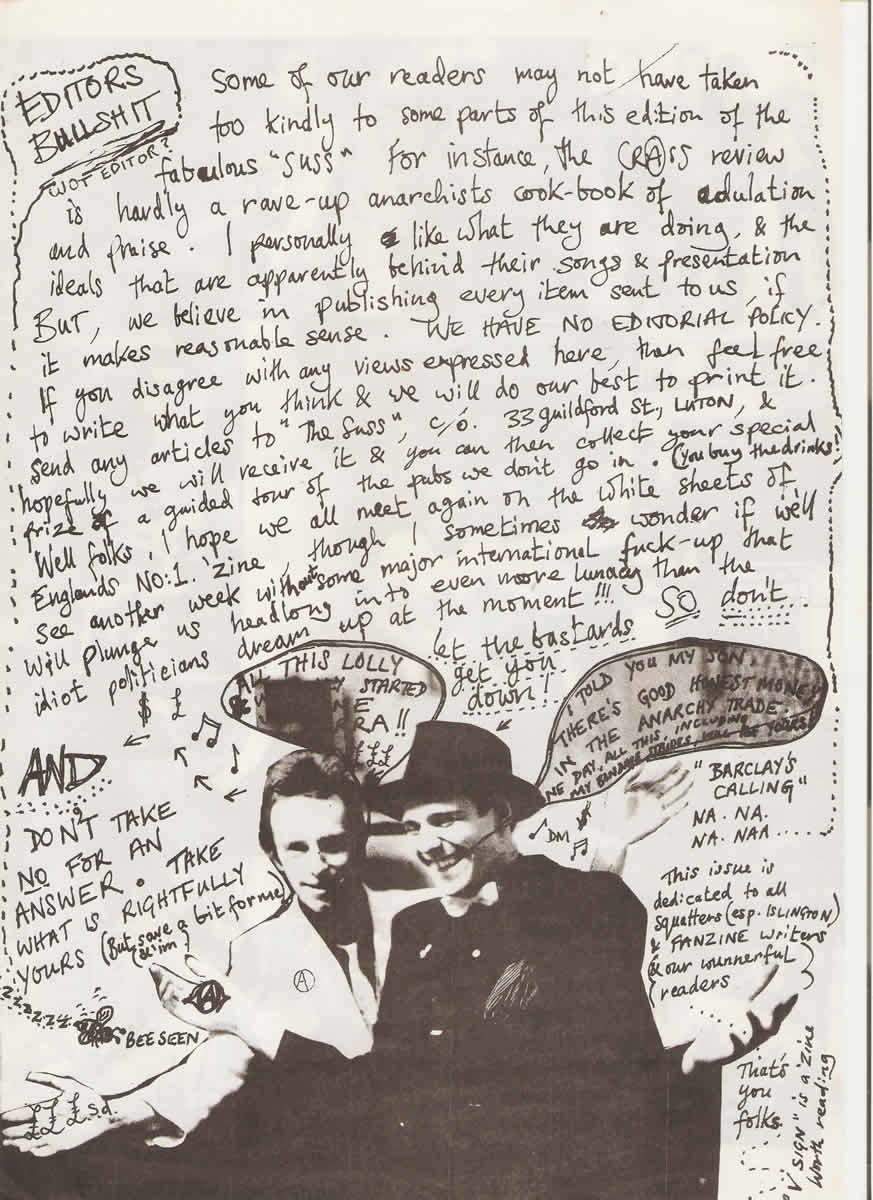 EDITORS
BULLSHIT
WOT EDITOR?
Some of our readers may not have taken
too kindly to some parts of this edition of the
fabulous "Suss" For instance, the CRASS review
is hardly a rave-up anarchists cook-book of adulation
and praise. I personally like what they are doing, & the
ideals that are apparently behind their songs & presentation
BUT, we believe in publishing every item sent to us, if
it makes reasonable sense. WE HAVE NO EDITORIAL POLICY.
If you disagree with any views expressed here, then feel free
to write what you think & we will do our best to print it.
Send any articles to "The Suss", c/o. 33 guildford St., LUTON, &
hopefully we will receive it & you can then collect your special
prize of a guided tour of the pubs we don't go in. (you buy the drinks!)
Well folks, I hope we all meet again on the white sheets of
Englands NO:1. 'zine, though I sometimes wonder if we'll
see another week without some major international fuck-up that
will plunge us headlong into even more lunacy than the
idiot politicians dream up at the moment!!! SO don't
let the bastards
get you
down!
ALL THIS LOLLY
STARTED
RA!!
£££
I TOLD YOU MY SON,
THERE'S GOOD HONEST MONEY
IN THE ANARCHY TRADE.
NE DAY, ALL THIS, INCLUDING
MY BONDAGE STRIDES, WILL BE YOURS!
$ £
AND
DON'T TAKE
NO FOR AN
ANSWER. TAKE
WHAT IS RIGHTFULLY
YOURS (But save a bit for me
& 'im)
"BARCLAY'S
CALLING"
NA. NA.
NA. NAA.....
DM $
This issue is
dedicated to all
Squatters (esp. ISLINGTON)
& FANZINE writers
(& our wunnerful
readers)
A
A
ZZZZZZZ
BEE SEEN
£ £ £.s.d.
£ £ £
That's
you
folks.
V SIGN" is a 'zine
Worth reading